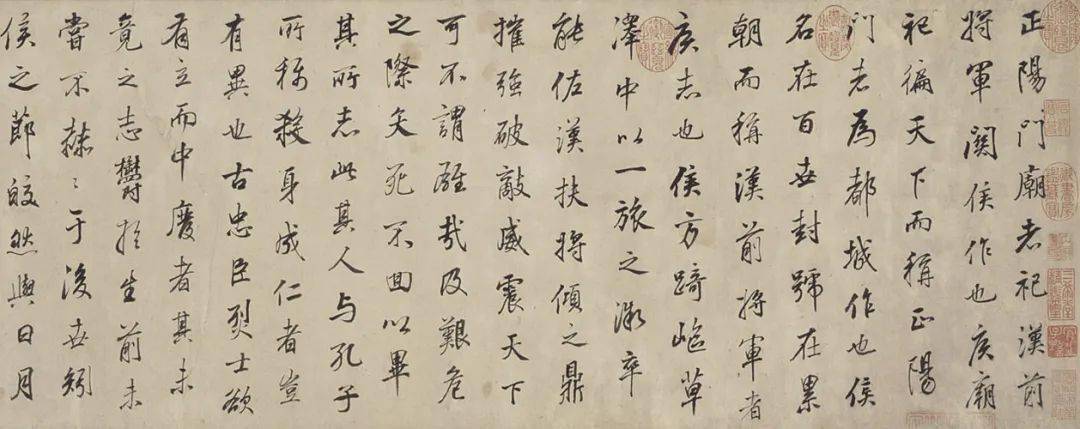 正陽門廟者祀漢前
將軍關侯作也侯廟
祀徧天下而稱正陽
門者為都城作也侯
名在百世封號在累
朝而稱漢前將軍者
侯志也侯方踦嶇草
澤中以一旅之微卒
能佐漢扶將傾之鼎
摧強破敵威震天下
可不謂雄哉及艱危
之際矢死不回以畢
其所志此其人与孔子
所稱殺身成仁者豈
有異也古忠臣烈士欲
有立而中廢者其未
竟之志欝於生前未
嘗不于後世矧
侯之節皎然與日月